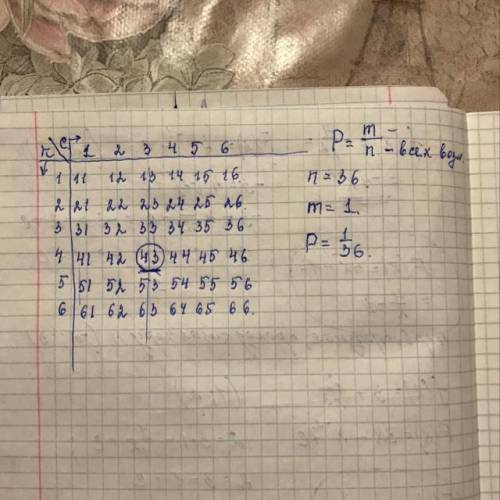 к\с 1 2 3 4 5 6
1 11 12 13 14 15 16
2 21 22 23 24 25 26
3 31 32 33 34 35 36
4 41 42 43 44 45 46
5 51 52 53 54 55 56
6 61 62 63 64 65 66.
P = m/n - всех возм
n = 36.
m = 1.
P = 1/36.